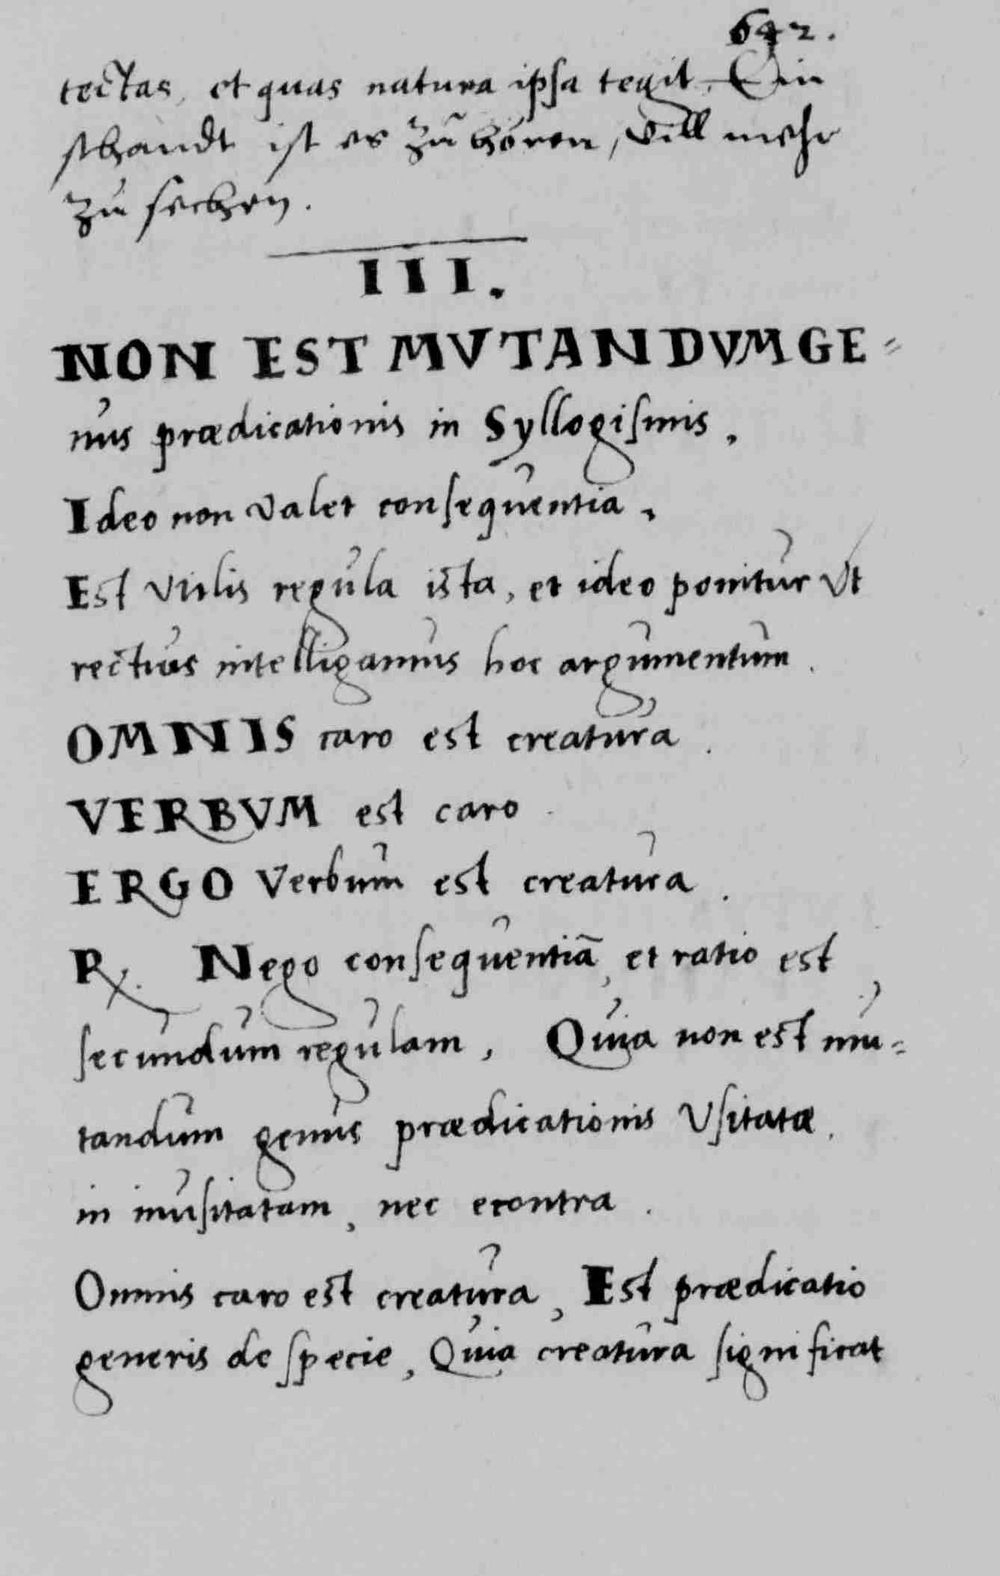 642.
tectas, et quas natura ipsa tegit. Ein
schandt ist es zu hören, vill mehr
zu sechen.
III.
NON EST MVTANDVM GE=
nus prædicationis in Syllogismis.
Ideo non valet consequentia.
Est vtilis regula ista, et ideo ponitur vt
rectius intelligamus hoc argumentum.
OMNIS caro est creatura.
VERBVM est caro.
ERGO Verbum est creatura.
R. Nego consequentiã, et ratio est
secundum regulam, Quia non est mu=
tandum genus prædicationis Vsitatæ.
in inusitatam, nec econtra.
Omnis caro est creatura, Est prædicatio
generis de specie, Quia creatura significat